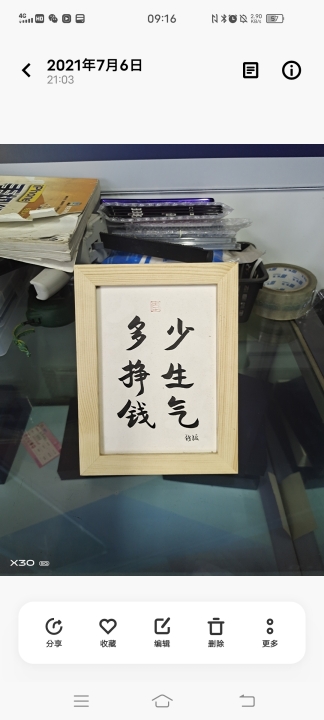 4G HD
09:16
2.90 KB/s
2021年7月6日
21:03
iPhone
少生气
多挣钱
X30 5G
分享
收藏
编辑
删除
更多